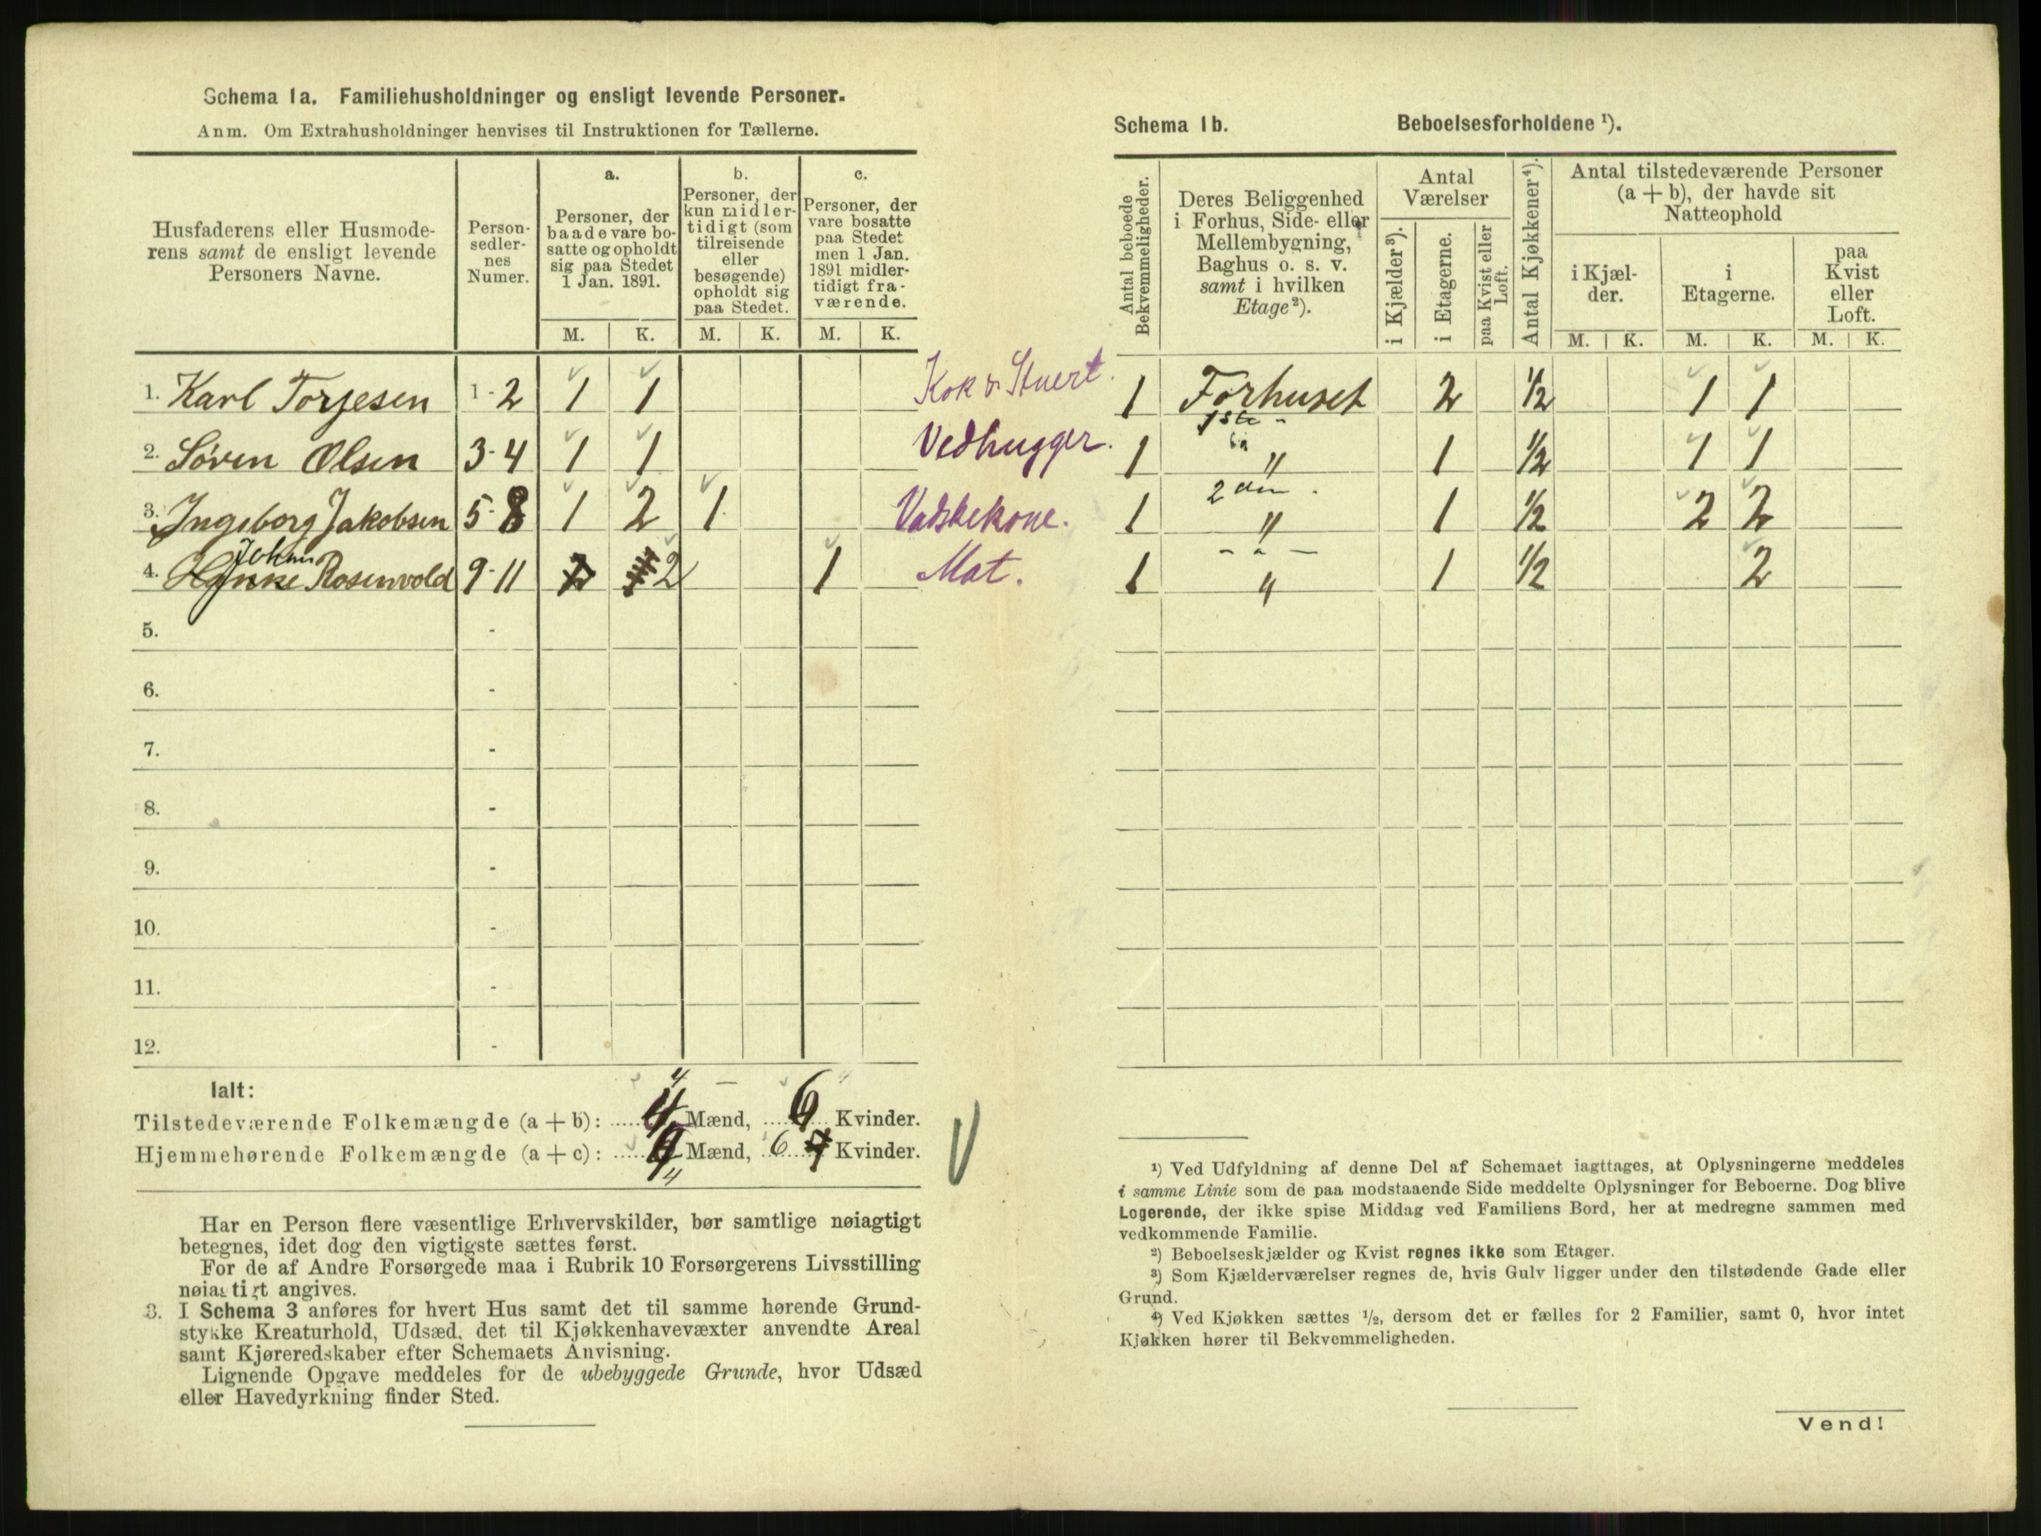 Schema 1a. Familiehusholdninger og ensligt levende Personer.
Anm. Om Extrahusholdninger henvises til Instruktionen for Tællerne.
Husfaderens eller Husmode-
rens samt de ensligt levende
Personers Navne.
Person-
sedler-
nes
Numer.
a.
Personer, der
baade vare bo-
satte og opholdt
sig paa Stedet
1 Jan. 1891.
b.
Personer, der
kun midler-
tidigt (som
tilreisende
eller
besøgende)
opholdt sig
paa Stedet.
c.
Personer, der
vare bosatte
paa Stedet
men 1 Jan.
1891 midler-
tidigt fra-
værende.
M. K. M. K. M. K.
1. Karl Torjesen 1-2 1 1 Kok & Stuert.
2. Søren Olsen 3-4 1 1 Vedhugger.
3. Ingeborg Jakobsen 5-8 1 2 1 Vadskekone.
Johan
4. Rosenvold 9-11 2 1 Mat.
5. -
6. -
7. -
8. -
9. -
10. -
11. -
12. -
Ialt:
4 —
Tilstedeværende Folkemængde (a + b): 4 Mænd, 6 Kvinder.
Hjemmehørende Folkemængde (a + c): Mænd, 6 Kvinder.
4
Har en Person flere væsentlige Erhvervskilder, bør samtlige nøiagtigt
betegnes, idet dog den vigtigste sættes først.
For de af Andre Forsørgede maa i Rubrik 10 Forsørgerens Livsstilling
nøiagtigt angives.
3. I Schema 3 anføres for hvert Hus samt det til samme hørende Grund-
stykke Kreaturhold, Udsæd, det til Kjøkkenhavevæxter anvendte Areal
samt Kjøreredskaber efter Schemaets Anvisning.
Lignende Opgave meddeles for de ubebyggede Grunde, hvor Udsæd
eller Havedyrkning finder Sted.
Schema 1b. Beboelsesforholdene ¹).
Antal beboede
Bekvemmeligheder.
Deres Beliggenhed
i Forhus, Side- eller
Mellembygning,
Baghus o. s. v.
samt i hvilken
Etage²).
Antal
Værelser
i Kjælder³).
i Etagerne.
paa Kvist eller
Loft.
Antal Kjøkkener⁴).
Antal tilstedeværende Personer
(a + b), der havde sit
Natteophold
i Kjæl-
der.
i
Etagerne.
paa
Kvist
eller
Loft.
M. K. M. K. M. K.
1 Forhuset 2 1/2 1 1
1ste -
1 " 1 1/2 1 1
2den -
1 " 1 1/2 2 2
- " -
1 " 1 1/2 2
¹) Ved Udfyldning af denne Del af Schemaet iagttages, at Oplysningerne meddeles
i samme Linie som de paa modstaaende Side meddelte Oplysninger for Beboerne. Dog blive
Logerende, der ikke spise Middag ved Familiens Bord, her at medregne sammen med
vedkommende Familie.
²) Beboelseskjælder og Kvist regnes ikke som Etager.
³) Som Kjælderværelser regnes de, hvis Gulv ligger under den tilstødende Gade eller
Grund.
⁴) Ved Kjøkken sættes ½, dersom det er fælles for 2 Familier, samt 0, hvor intet
Kjøkken hører til Bekvemmeligheden.
Vend!